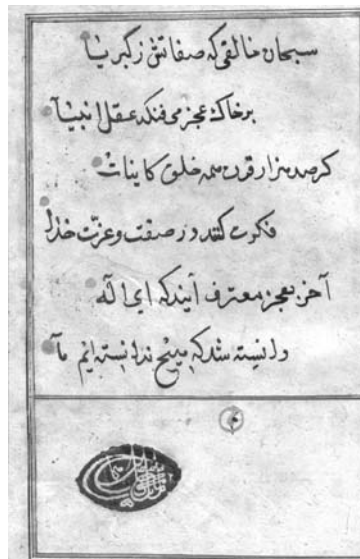 سبحان خالقی که صفاتش ز کبریا
بر خاک عجز می فکند عقل انبیا
گر صد هزار قرن همه خلق کاینات
فکرت کنند در صفت و عزت خدا
آخر بعجز معترف آیند که ای اله
دانسته شد که هیچ ندانسته ایم ما